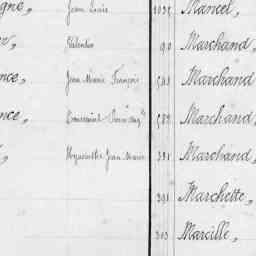 gne, Jean Louis 1035 Mancel,
Valentin 90 Marchand,
nce, Jean Marie François 593 Marchand
nce, Toussaint 589 Marchand,
Hyacinthe Jean Marie 391 Marchand,
391 Marchette,
303 Marcille,